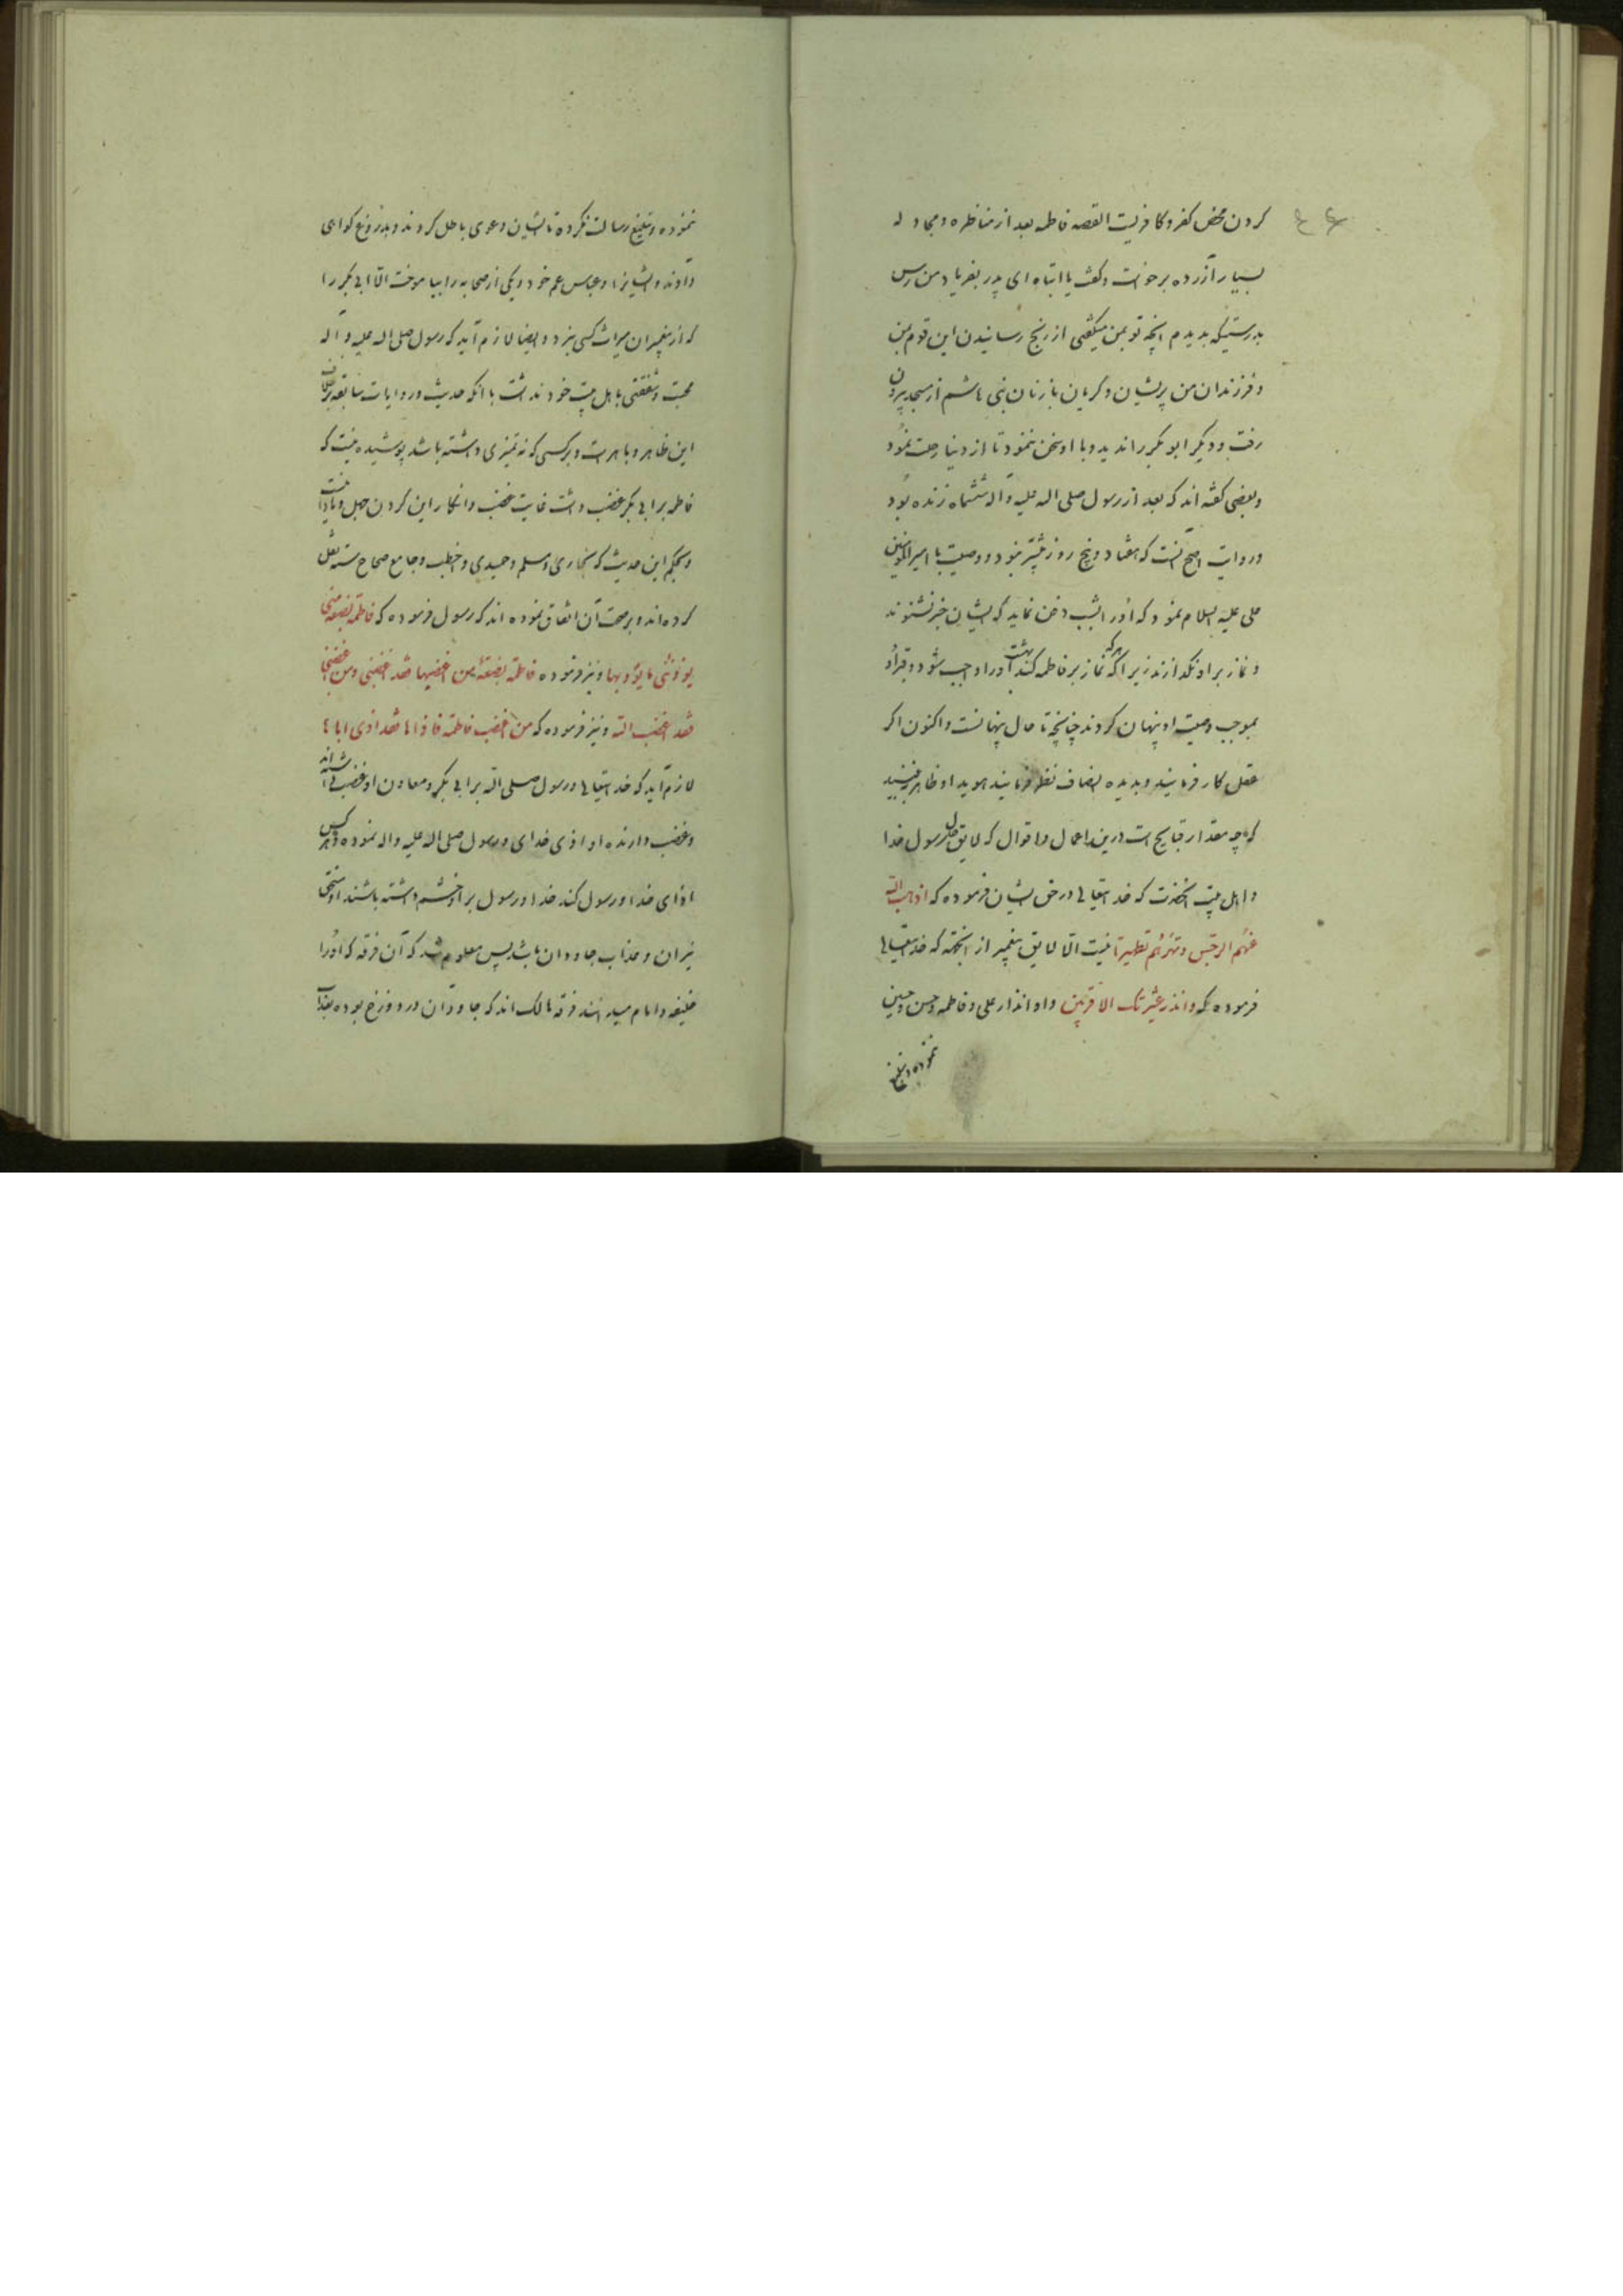 کردن محض کفر و کافریست القصه فاطمه بعد از مناظره و مجادله
بسیار آزرده برخواست و گفت یا ابتاه ای پدر بفریاد من رس
بدرستیکه بدیدم آنچه تو بمن میگفتی از رنج رسانیدن این قوم بمن
و فرزندان من پریشان و گریان با زنان بنی هاشم از مسجد بیرون
رفت و دیگر ابو بکر را ندید و با او سخن ننمود تا از دنیا رحلت نمود
و بعضی گفته اند که بعد از رسول صلی اله علیه و آله ششماه زنده بود
و روایت اصح آنست که هفتاد و پنج روز بیشتر نبود و وصیت با امیرالمومنین
علی علیه السلام نمود که او را بشب دفن نماید که ایشان خبر نشنوند
و نماز بر او نگذارند زیرا که هر که نماز بر فاطمه کند بهشت او را واجب شود و قبر او
بموجب وصیت او پنهان کردند چنانچه تا حال پنهانست و اکنون اگر
عقل کار فرمایند و بدیده انصاف نظر فرمایند هویدا و ظاهر
که چه مقدار قبایح است درین اعمال و اقوال که لایق حال رسول خدا
و اهل بیت آنحضرت که خدایتعالی در حق ایشان فرموده که اذهب الله
عنهم الرجس و تطهرهم تطهیرا نیست الا لایق پیغمبر از آنجهته که خدایتعالی
فرموده که و انذر عشیرتک الاقربین و او انذار علی و فاطمه و حسن و حسین
ننموده و تبلیغ
ننموده و تبلیغ رسالت نکرده تا ایشان دعوی باطل کردند و بدروغ گواهی
دادند و ایشانرا و عباس عم خود و یکی از صحابه را نیاموخت الا ابی بکر را
که از پیغمبران میراث کسی نبرد و ایضا لازم آید که رسول صلی اله علیه و آله
محبت و شفقتی با اهل بیت خود نداشت با آنکه حدیث و روایات سابقه
این ظاهر و باهر است و بر کسی که نه تمیزی داشته باشد پوشیده نیست که
فاطمه بر ابی بکر غضب داشت غایت غضب و انکار این کردن جهل و نادانیست
و بحکم این حدیث که بخاری و مسلم و حمیدی و خطب و جامع صحاح سته نقل
کرده اند و بر صحت آن اتفاق نموده اند که رسول فرموده که فاطمة بضعة منی
یؤذینی ما یؤذیها و نیز فرموده فاطمة بضعة من اغضبها فقد اغضبنی و من اغضبنی
فقد اغضب الله و نیز فرموده که من اغضب فاطمة فاذاها فقد اذی اباها
لازم آید که خدایتعالی و رسول صلی الله بر ابی بکر و معاون او غضب داشته اند
و غضب دارنده او اذی خدای و رسول صلی اله علیه و اله نموده و هر کس
اذای خدا و رسول کند خدا و رسول بر او خشم داشته باشند او مستحق
نیران و عذاب جاودان باشد پس معلوم شد که آن فرقه که او را
خلیفه و امام میدانند فرقه هالک اند که جاودان در دوزخ بوده بعذاب